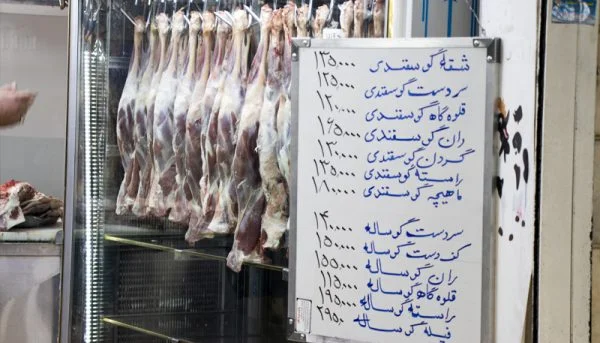 شقه گوسفندی ۱۳۵,۰۰۰
سردست گوسفندی ۱۲۵,۰۰۰
قلوه گاه گوسفندی ۱۲۰,۰۰۰
ران گوسفندی ۱۶۵,۰۰۰
گردن گوسفندی ۱۳۰,۰۰۰
راسته گوسفندی ۱۳۵,۰۰۰
ماهیچه گوسفندی ۱۸۰,۰۰۰
سردست گوساله ۱۴۰,۰۰۰
گوساله ۱۵۰,۰۰۰
ران گوساله ۱۵۵,۰۰۰
قلوه گاه گوساله ۱۱۵,۰۰۰
راسته گوساله ۱۹۵,۰۰۰
فیله گوساله